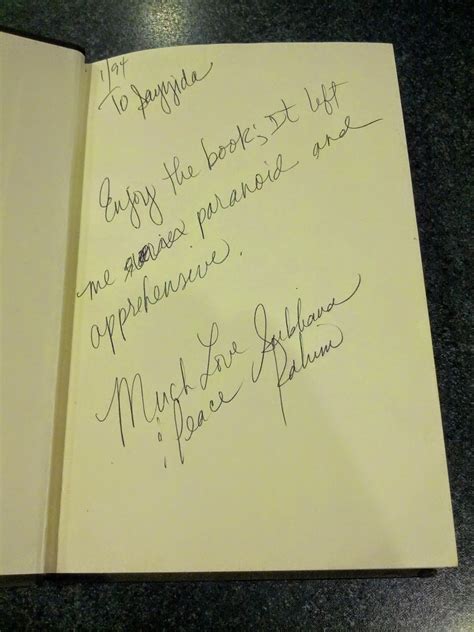 1/94
To Sayyida
Enjoy the book; It left
me paranoid and
apprehensive.
Much Love Subhana
; Peace Rahim